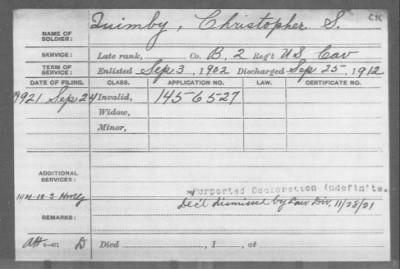 CK
NAME OF SOLDIER: Quimby, Christopher S.
SERVICE: Late rank, Co. B, 2 Reg't US Cav
TERM OF SERVICE: Enlisted Sep 3, 1902 Discharged Sep 25, 1912
DATE OF FILING. CLASS. APPLICATION NO. LAW. CERTIFICATE NO.
1921 Sep 24 Invalid, 1456527
Widow,
Minor,
ADDITIONAL SERVICES:
Purported Declaration indefinite.
Decl dismissed by Law Div. 11/28/21
REMARKS:
Att D Died , 1 , at